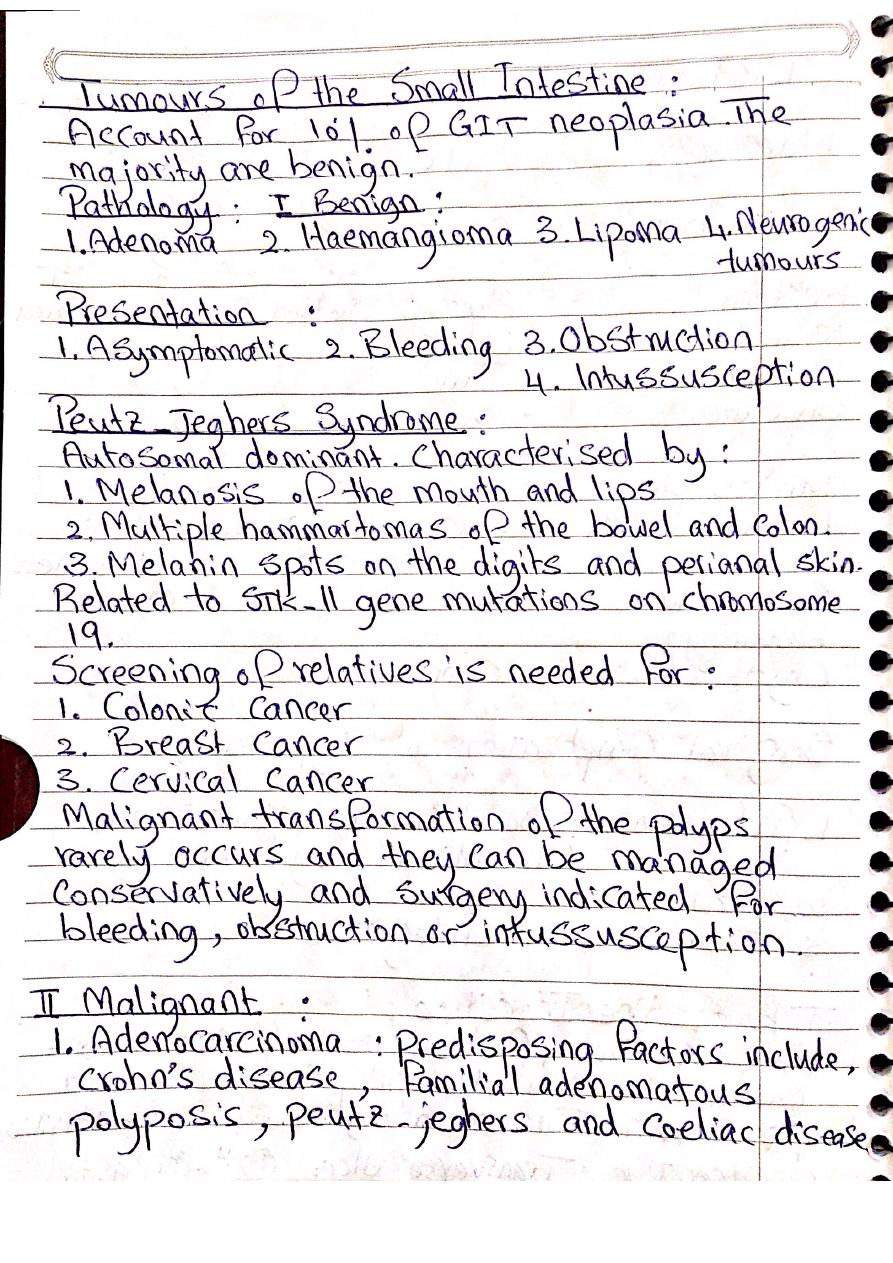 Tumours of the Small Intestine :
Account for 10% of GIT neoplasia. The
majority are benign.
Pathology : I Benign :
1. Adenoma 2. Haemangioma 3. Lipoma 4. Neurogenic
tumours
Presentation :
1. Asymptomatic 2. Bleeding 3. Obstruction
4. Intussusception
Peutz-Jeghers Syndrome :
Autosomal dominant. Characterised by :
1. Melanosis of the mouth and lips
2. Multiple hammartomas of the bowel and colon.
3. Melanin spots on the digits and perianal skin.
Related to STK-11 gene mutations on chromosome
19.
Screening of relatives is needed for :
1. Colonic cancer
2. Breast cancer
3. Cervical cancer
Malignant transformation of the polyps
rarely occurs and they can be managed
conservatively and surgery indicated for
bleeding, obstruction or intussusception.
II Malignant :
1. Adenocarcinoma : Predisposing factors include,
crohn's disease, familial adenomatous
polyposis, peutz-jeghers and coeliac disease